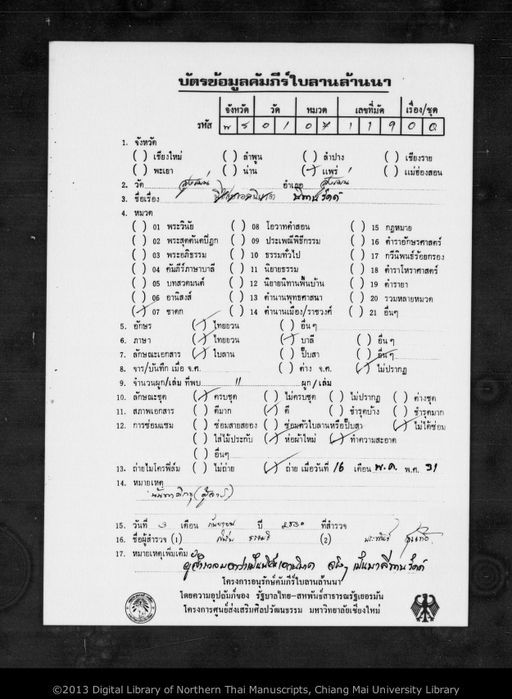 บัตรข้อมูลคัมภีร์ใบลานล้านนา
จังหวัด วัด หมวด เลขที่มัด เรื่อง/ชุด
รหัส พ ร 0 1 0 7 1 1 9 0 0
1. จังหวัด
( ) เชียงใหม่ ( ) ลำพูน ( ) ลำปาง ( ) เชียงราย
( ) พะเยา ( ) น่าน (/) แพร่ ( ) แม่ฮ่องสอน
2. วัด สูงเม่น อำเภอ สูงเม่น
3. ชื่อเรื่อง
4. หมวด
( ) 01 พระวินัย ( ) 08 โอวาทคำสอน ( ) 15 กฎหมาย
( ) 02 พระสุตตันตปิฎก ( ) 09 ประเพณีพิธีกรรม ( ) 16 ตำราอักษรศาสตร์
( ) 03 พระอภิธรรม ( ) 10 ธรรมทั่วไป ( ) 17 กวีนิพนธ์ร้อยกรอง
( ) 04 คัมภีร์ภาษาบาลี ( ) 11 นิยายธรรม ( ) 18 ตำราโหราศาสตร์
( ) 05 บทสวดมนต์ ( ) 12 นิยายนิทานพื้นบ้าน ( ) 19 ตำรายา
( ) 06 อานิสงส์ ( ) 13 ตำนานพุทธศาสนา ( ) 20 รวมหลายหมวด
(/) 07 ชาดก ( ) 14 ตำนานเมือง/ราชวงศ์ ( ) 21 อื่นๆ
5. อักษร (/) ไทยยวน ( ) อื่นๆ
6. ภาษา (/) ไทยยวน (/) บาลี ( ) อื่นๆ
7. ลักษณะเอกสาร (/) ใบลาน ( ) ปั๊บสา ( ) อื่นๆ
8. จาร/บันทึก เมื่อ จ.ศ. ( ) ต่าง จ.ศ. (/) ไม่ปรากฏ
9. จำนวนผูก/เล่ม ที่พบ 11 ผูก/เล่ม
10. ลักษณะชุด (/) ครบชุด ( ) ไม่ครบชุด ( ) ไม่ปรากฏ ( ) ต่างชุด
11. สภาพเอกสาร ( ) ดีมาก (/) ดี ( ) ชำรุดบ้าง ( ) ชำรุดมาก
12. การซ่อมแซม ( ) ซ่อมสายสยอง ( ) ซ่อมตัวใบลานหรือปั๊บสา (/) ไม่ได้ซ่อม
( ) ใส่ไม้ประกับ (/) ห่อผ้าใหม่ (/) ทำความสะอาด
( ) อื่นๆ
13. ถ่ายไมโครฟิล์ม ( ) ไม่ถ่าย (/) ถ่าย เมื่อวันที่ 16 เดือน พ.ค. พ.ศ. 31
14. หมายเหตุ
15. วันที่ 3 เดือน กันยายน ปี 2530 ที่สำรวจ
16. ชื่อผู้สำรวจ (1) (2)
17. หมายเหตุเพิ่มเติม
โครงการอนุรักษ์คัมภีร์ใบลานล้านนา
โดยความอุปถัมภ์ของ รัฐบาลไทย-สหพันธ์สาธารณรัฐเยอรมัน
โครงการศูนย์ส่งเสริมศิลปวัฒนธรรม มหาวิทยาลัยเชียงใหม่
©2013 Digital Library of Northern Thai Manuscripts, Chiang Mai University Library